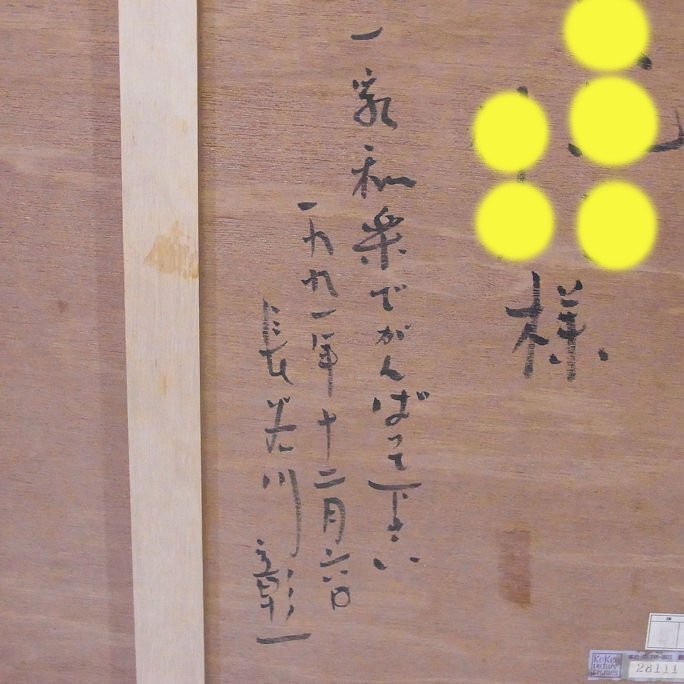 様
一家和楽でがんばって下さい
一九九一年十二月六日
長谷川彰一
28111